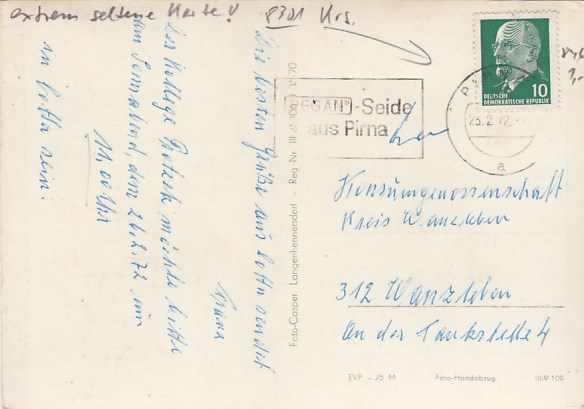 extrem seltene Karte!
8301 Krs.
Die besten Grüße aus Cotta sendet
Der Kollege möchte bitte
am Sonnabend, dem 26.2.72 um
11,00 Uhr
in Cotta sein.
Foto-Casper, Langenhennersdorf - Reg Nr. III
REGAN®-Seide
aus Pirna
DEUTSCHE
DEMOKRATISCHE REPUBLIK
10
25.2.72
a
Konsumgenossenschaft
Kreis Wanzleben
312 Wanzleben
An der Tankstelle 4
EVP - 25 M
Foto-Handabzug